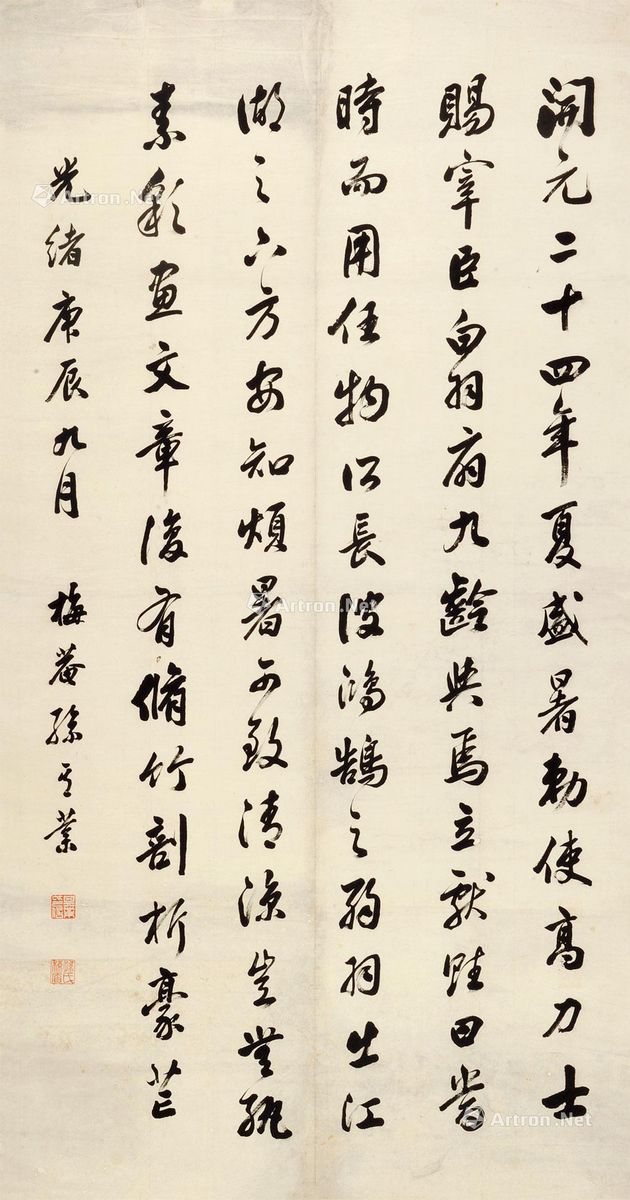 開元二十四年夏盛暑勅使高力士
賜宰臣白羽扇九齡與焉立獻賦曰當
時而用任物所長彼鴻鵠之弱羽出江
湖之下方安知煩暑可致清涼豈無紈
素彩畫文章復有脩竹剖析豪芒
光緒庚辰九月 梅菴孫業
Artron.Net
Artron.Net
Artron.Net